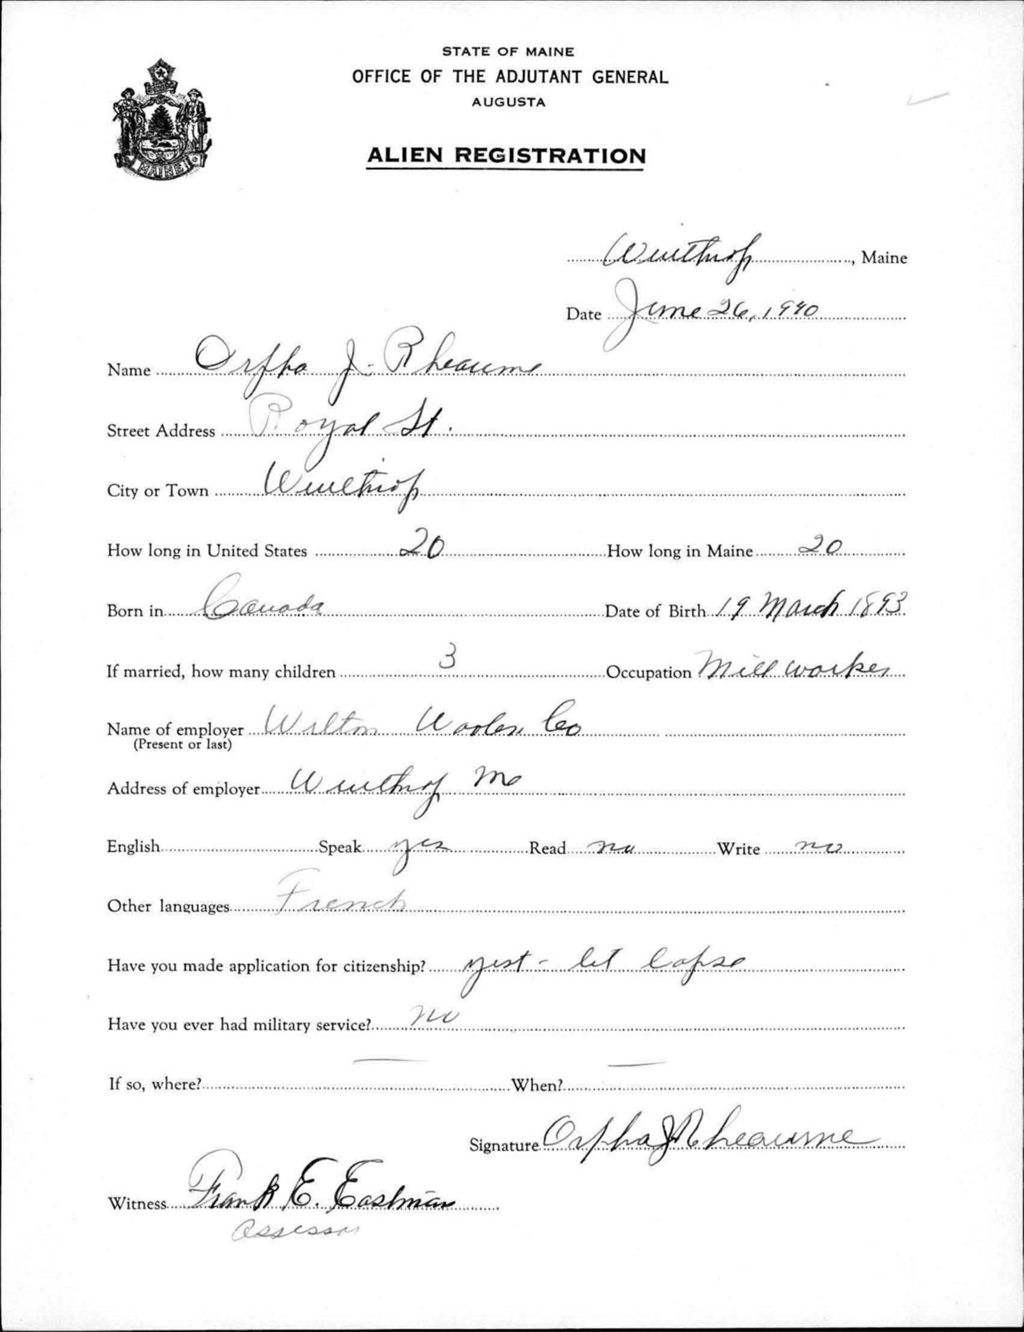 STATE OF MAINE
OFFICE OF THE ADJUTANT GENERAL
AUGUSTA
ALIEN REGISTRATION
MAINE
Winthrop, Maine
Date June 26, 1940
Name Orpha J. Rheaume
Street Address Royal St.
City or Town Winthrop
How long in United States 20 How long in Maine 20
Born in Canada Date of Birth 19 March 1893
If married, how many children 3 Occupation Mill worker
Name of employer Wilton Woolen Co
(Present or last)
Address of employer Winthrop Me
English Speak yes Read no Write no
Other languages French
Have you made application for citizenship? - let lapse
Have you ever had military service? No
If so, where? — When? —
Signature Orpha J Rheaume
Witness Frank E. Eastman
Assessor